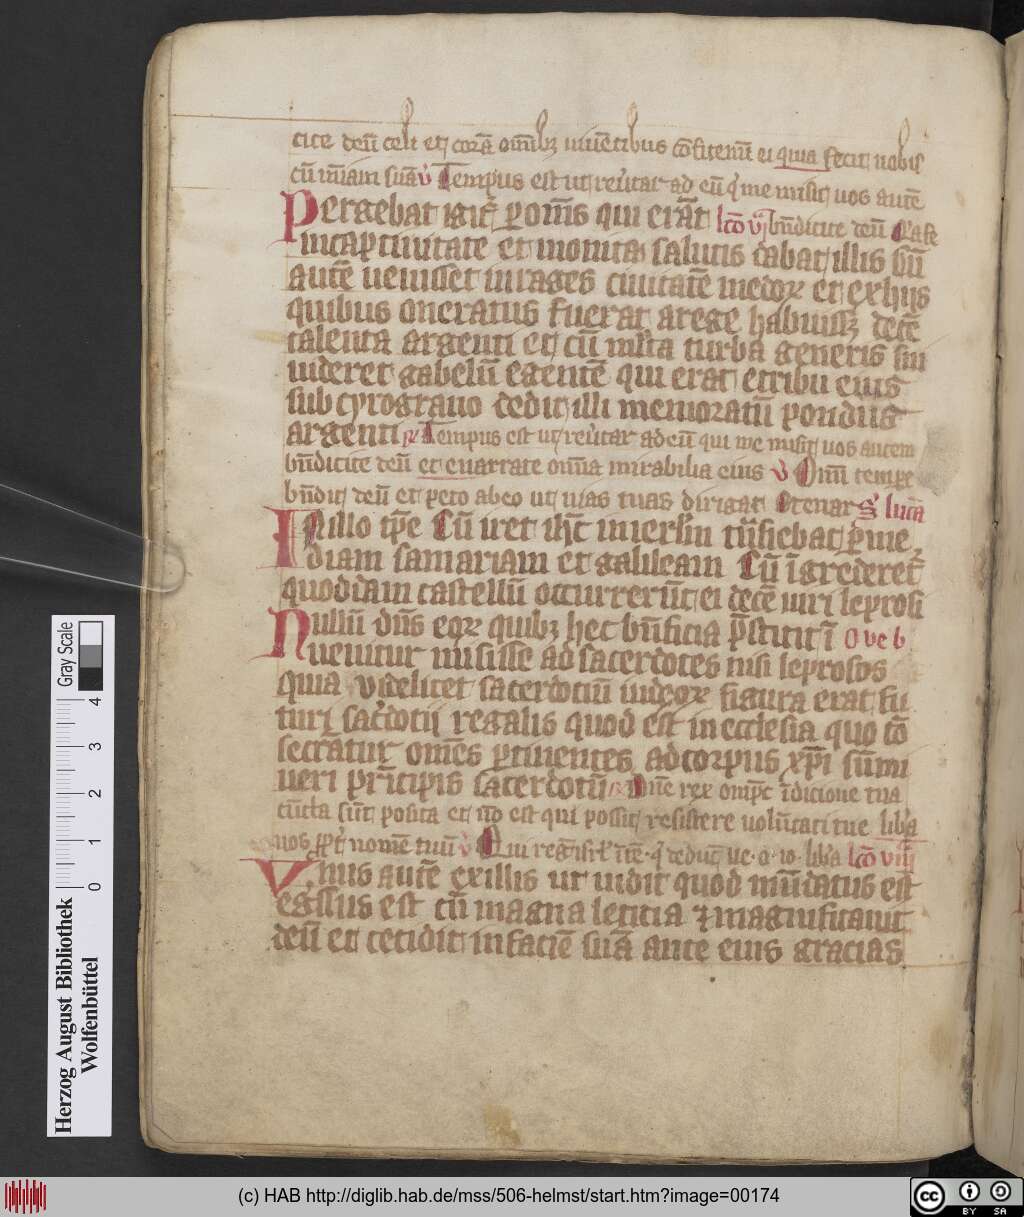 cite deū celi et corā omībꝫ uiuētibus cōfitemī ei quia fecit nobis
cū mīam suā v Tempus est ut reūtar ad eū qͥ me misit uos autē
Pergebat igiť ꝑ om̄s qui erāt lcō vi bn̄dicite deū
in captiuitate et monita salutis dabat illis Cū
autē uenisset in rages ciuitatē medoꝝ et ex hijs
quibus oneratus fuerat a rege habuissꝫ decē
talenta argenti et cū multa turba generis sui
uideret gabelū egentē qui erat ex tribu eius
sub cyrograuo dedit illi memoratū pondus
argenti ꝶ Tempus est ut reūtar ad eū qui me misit uos autem
bn̄dicite deū et enarrate omīa mirabilia eius v Omī tempe
bn̄dic deū et peto ab eo ut uias tuas dirigat Et enar s̄ lucā
In illo tp̄e Cū iret ih̄c in ierlm̄ tn̄siebat ꝑ me
diam samariam et galileam Cū īgrederet̄
quoddam castellū occurrerūt ei decē uiri leprosi
Nullū dn̄s eoꝝ quibꝫ hec bn̄ficia p̄stitit ī O ve b
uenitur misisse ad sacerdotes nisi leprosos
quia videlicet sacerdotiū iudeoꝝ figura erat fu
turi sac̄dotij regalis quod est in ecclesia quo cō
secratur om̄es ꝑtinentes ad corpus xp̄i sūmi
ueri principis sacerdotū ꝶ Dn̄e rex omīpc ī dicione tua
cūcta sūt posita et nō est qui possit resistere volūtati tue libͣa
nos ꝓpť nomē tuū v Qui regis isrl̄ ītē qͥ deduc ue o io libͣa lcō viii
Vnus autē ex illis ut uidit quod mūdatus est
regressus est cū magna leticia ⁊ magnificauit
deū et cecidit in faciē suā ante eius gracias
Gray Scale
0 1 2 3 4
Herzog August Bibliothek
Wolfenbüttel
(c) HAB http://diglib.hab.de/mss/506-helmst/start.htm?image=00174
cc BY SA